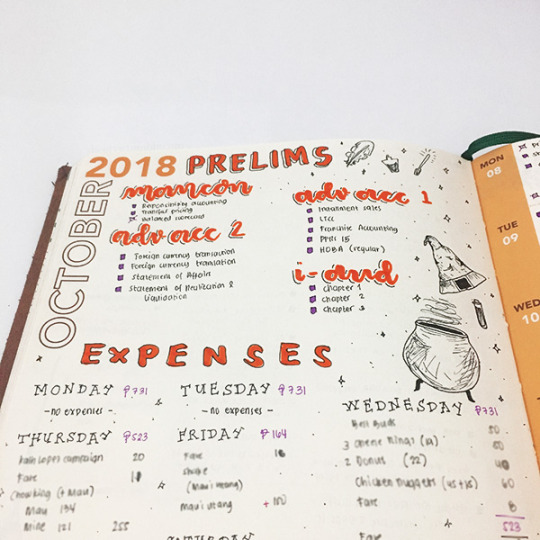 2018 PRELIMS
OCTOBER
mancon
Responsibility accounting
Transfer pricing
Balanced scorecard
adv acc 2
Foreign currency transaction
Foreign currency translation
Statement of Affairs
Statement of Realization &
Liquidation
adv acc 1
Installment sales
LTCC
Franchise Accounting
PFRS 15
HOBA (regular)
i-aud
chapter 1
chapter 2
chapter 3
EXPENSES
MONDAY ₱731
- no expenses -
TUESDAY ₱731
- no expenses -
WEDNESDAY ₱731
50
3 Cheese Rings (21)
60
2 Donuts (22)
40
Chicken Nuggets (45+15)
60
Fare
8
523
Fare
THURSDAY ₱523
20
Fare
(+ Mau)
Mau 134
Mine 121 255
FRIDAY ₱164
Fare
(Maui utang)
Maui utang + 100
MON
08
TUE
09
WED
10